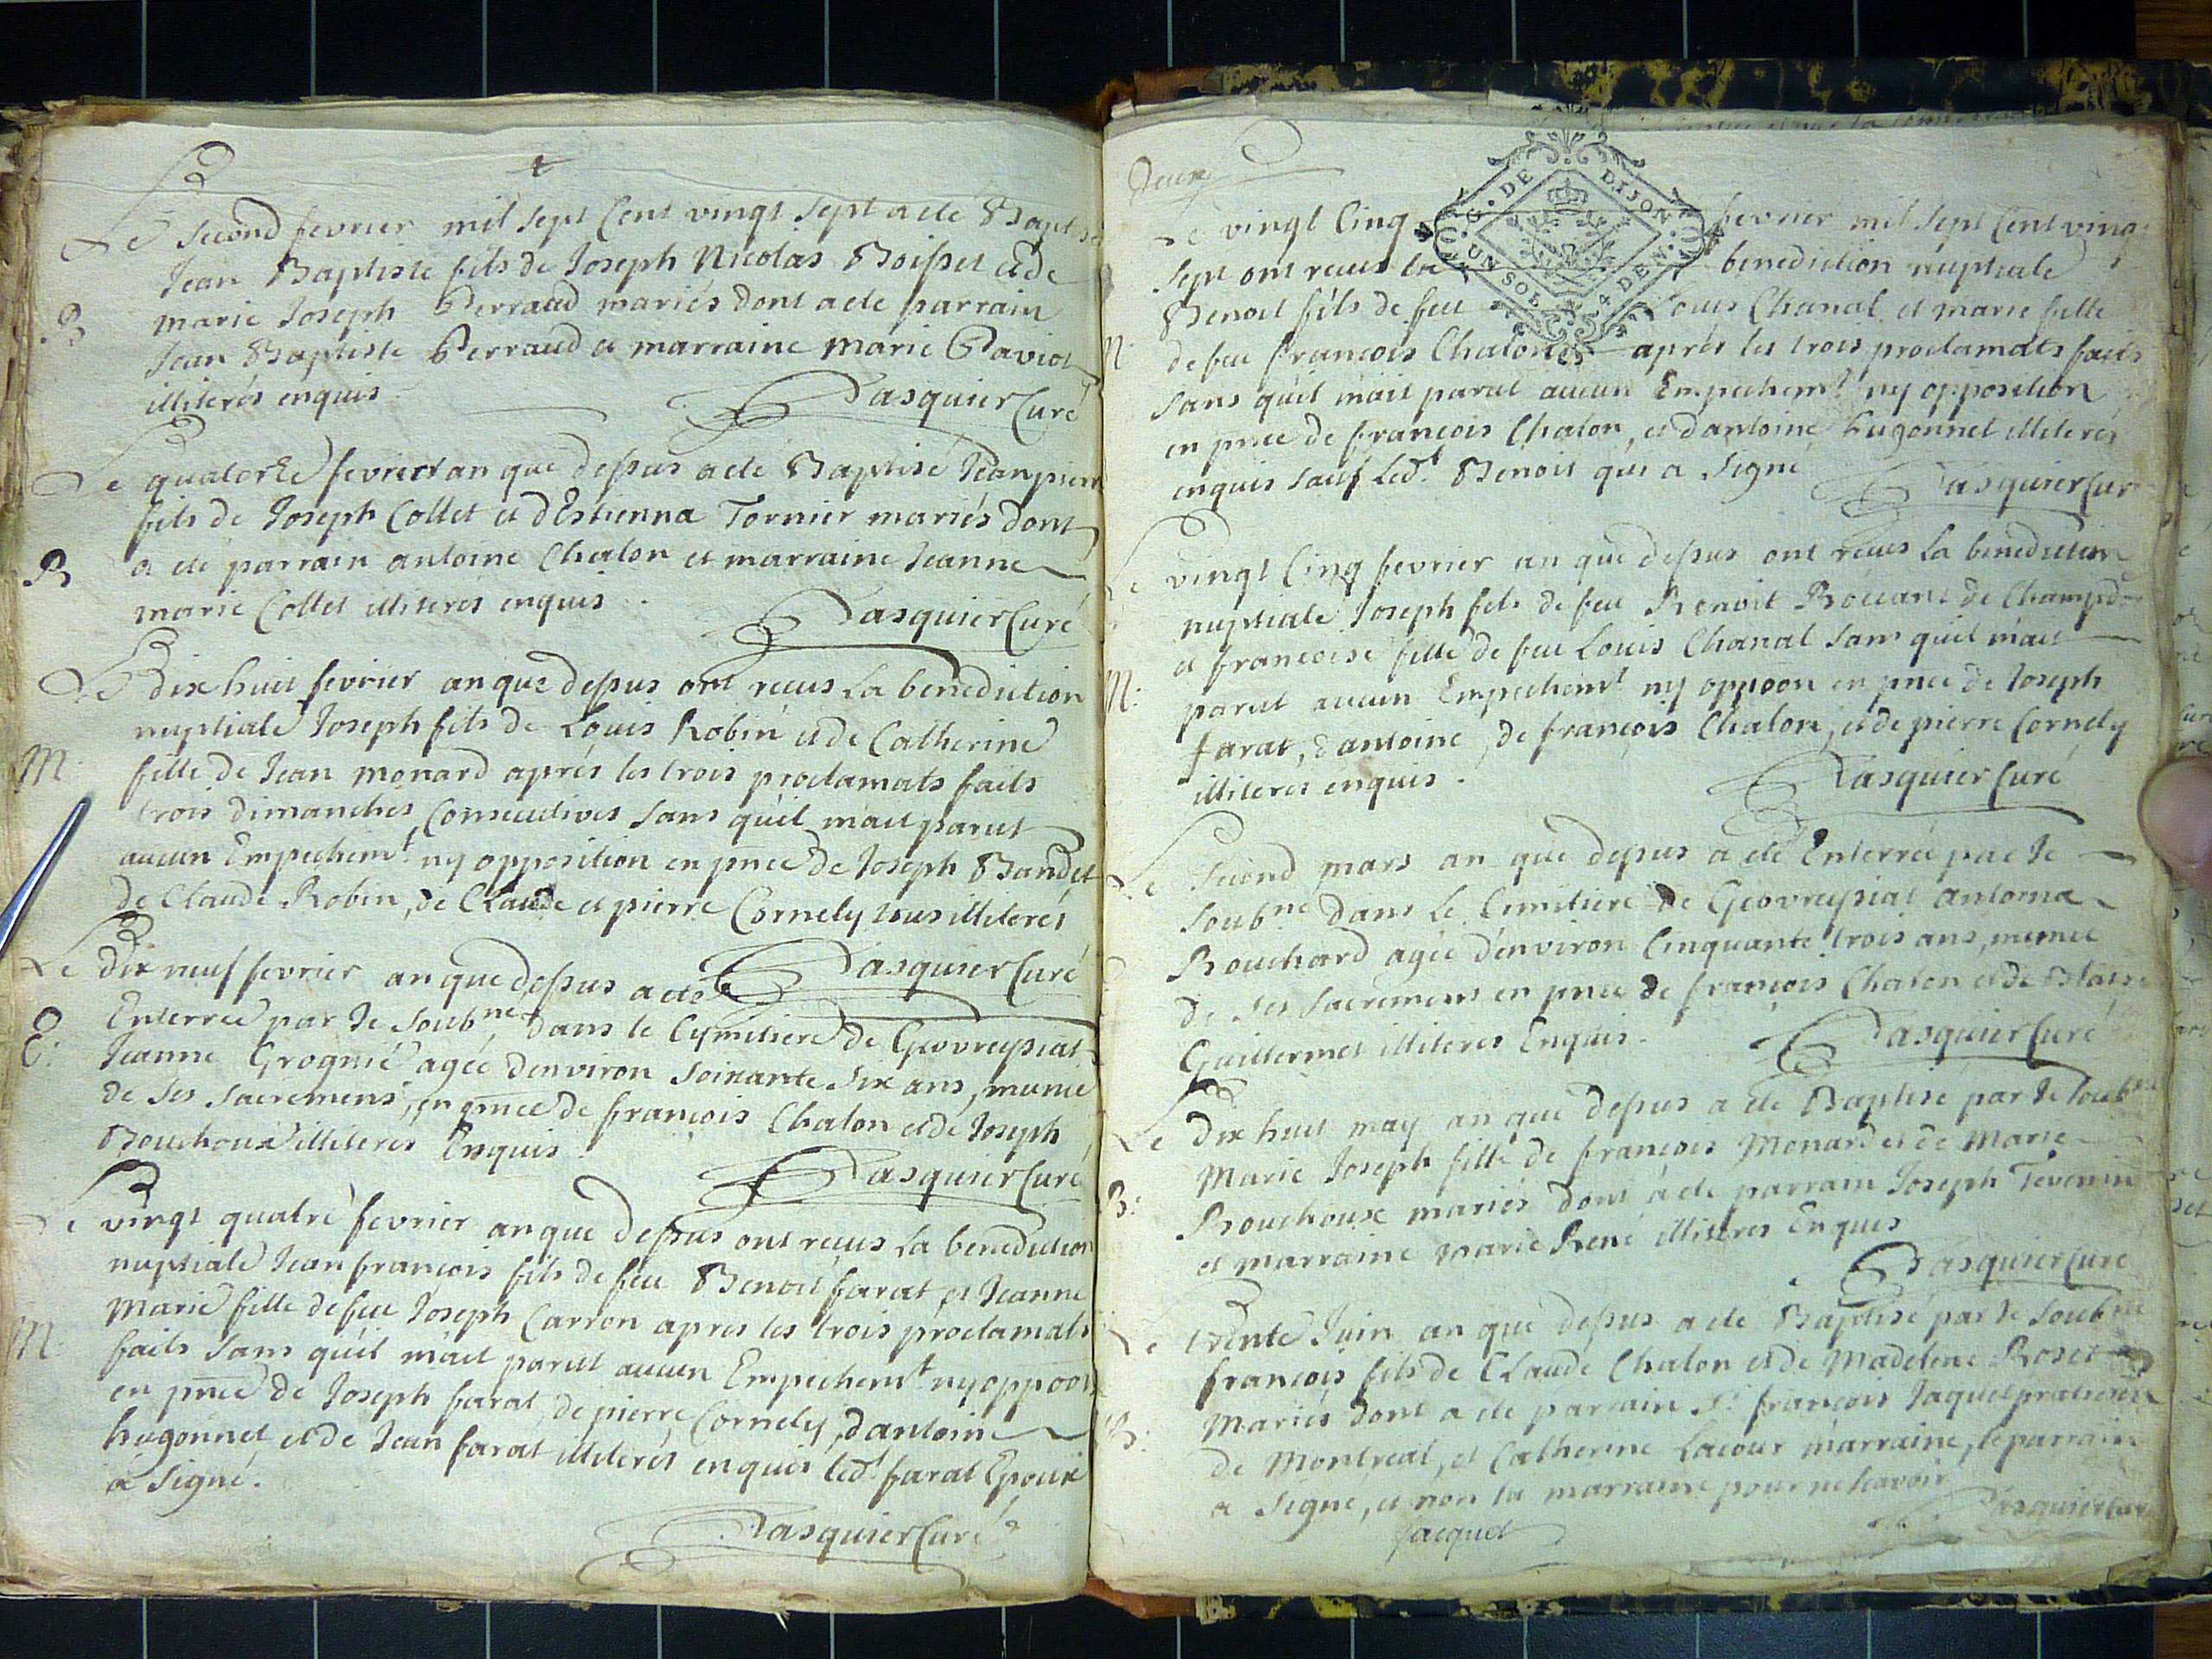 Le second fevrier mil sept cent vingt sept a eté Baptisé
Jean Baptiste fils de Joseph Nicolas Boisset et de
B
marie Joseph Perraud mariés dont a eté parrain
Jean Baptiste Perraud et marraine marie Paviot
illiterés enquis
Pasquier Curé
Le quatorze fevrier an que dessus a eté Baptisé Jean pierre
fils de Joseph Collet et d'Estienna Tornier mariés dont
B
a eté parrain antoine Chalon et marraine Jeanne
marie Collet illiterés enquis.
Pasquier Curé
Le dix huit fevrier an que dessus ont recus La benediction
nuptiale Joseph fils de Louis Robin et de Catherine
M.
fille de Jean monard aprés les trois proclamats faits
trois dimanches Consecutives sans qu'il m'ait parut
aucun Empechemt ny opposition en pnce de Joseph Bandet
de Claude Robin, de Claude et pierre Cornely tous illiterés
Pasquier Curé
Le dix neuf fevrier an que dessus a eté
Enterrée par Je soubné dans le Cymitiere de Geovreyssiat
E.
Jeanne Grognié agée d'environ soixante six ans, munie
de ses sacremens, en pnce de françois Chalon et de Joseph
Bouchoux illiterés Enquis
Pasquier Curé
Le vingt quatre fevrier an que dessus ont recus La benediction
nuptiale Jean françois fils de feu Benoit farat et Jeanne
Marie fille de feu Joseph Carron apres les trois proclamats
M.
faits sans qu'il m'ait parut aucun Empechemt ny oppoon
en pnce de Joseph farat, de pierre Cornely, d'antoine
hugonnet et de Jean farat illiterés enquis ledt farat Epoux
a signé.
Pasquier Curé
Deux
G. DE DIJON
UN SOL 4 DEN.
Le vingt Cinq fevrier mil sept cent vingt
sept ont recus la benediction nuptiale
Benoit fils de feu Louis Chanal et marie fille
M.
de feu françois Chalon aprés les trois proclamats faits
sans qu'il m'ait parut aucun Empechemt ny opposition
en pnce de françois Chalon, et d'antoine hugonnet illiterés
enquis sauf Ledt Benoit qui a signé
Pasquier Curé
Le vingt Cinq fevrier an que dessus ont recus La benediction
nuptiale Joseph fils de feu Benoit de
et françoise fille de feu Louis Chanal sans qu'il m'ait
M.
parut aucun Empechemt ny oppoon en pnce de Joseph
farat, d'antoine, de françois Chalon, et de pierre Cornely
illiterés enquis.
Pasquier Curé
Le second mars an que dessus a eté Enterrée par Je
soubné dans Le Cimitiere de Geovreyssiat antoina
Bouchard agée d'environ Cinquante trois ans, munie
de ses sacremens en pnce de françois Chalon et de Blaise
Guillermet illiterés Enquis.
Pasquier Curé
Le dix huit may an que dessus a eté Baptisé par Je soubné
Marie Joseph fille de françois Monard et de Marie
B.
Bouchoux mariés dont a eté parrain Joseph Tevenin
et marraine marie René illiterés Enquis
Pasquier Curé
Le trente Juin an que dessus a eté Baptisé par Je soubné
françois fils de Claude Chalon et de Madelene Roset
B.
Mariés dont a eté parrain Sr françois Jaquet praticien
de Montreal, et Catherine Lacour marraine, le parrain
a signé, et non la marraine pour ne scavoir
Jacquet
Pasquier Curé